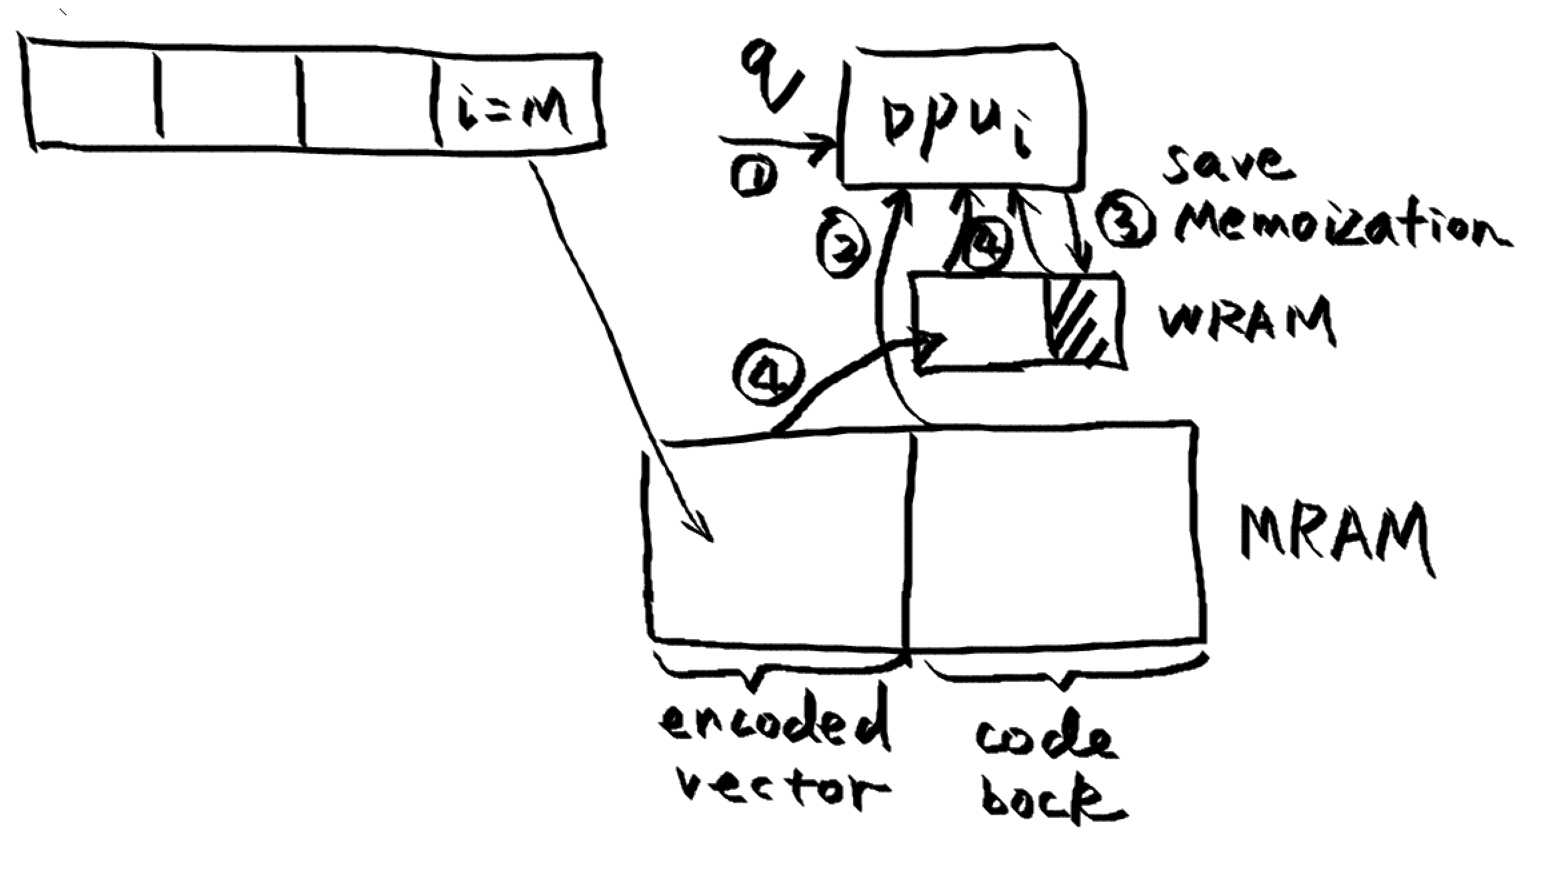 i=M
q
①
DPUi
②
④
③
save
Memoization
WRAM
④
MRAM
encoded
vector
code
bock